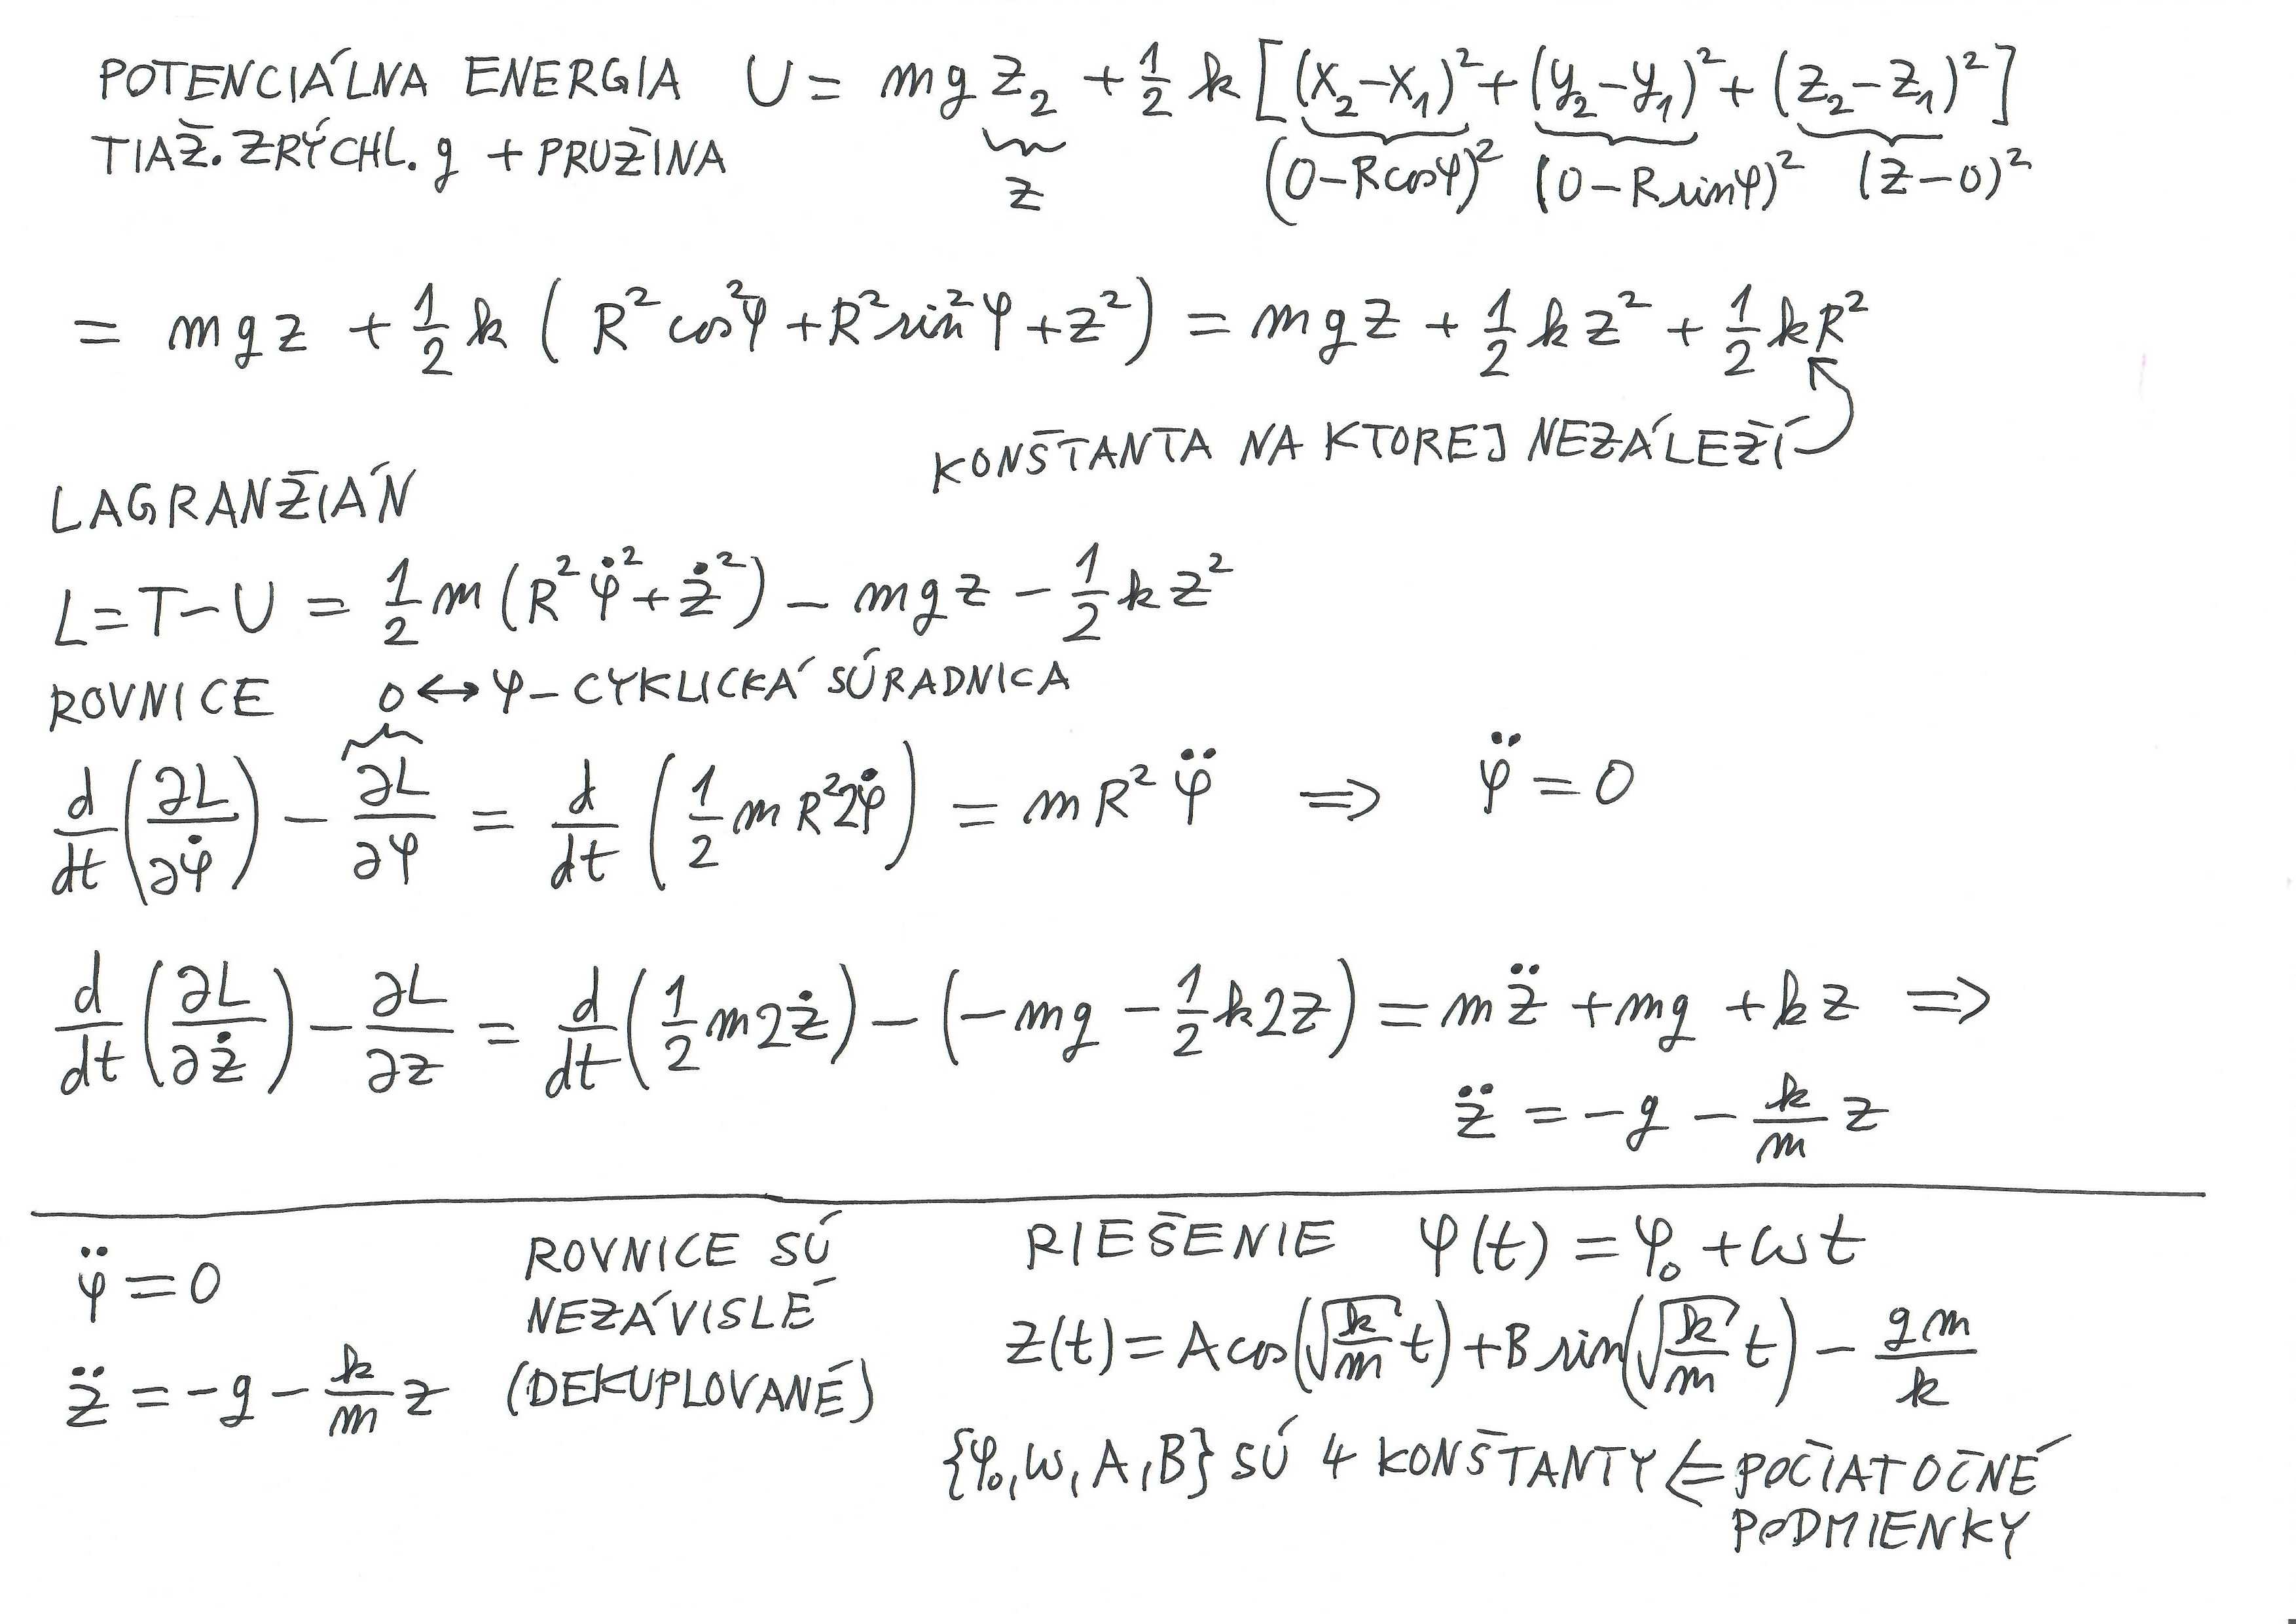 POTENCIÁLNA ENERGIA U = mg z₂ + ½ k [(x₂−x₁)² + (y₂−y₁)² + (z₂−z₁)²]
TIAŽ. ZRÝCHL. g + PRUŽINA z (0−Rcosφ)² (0−Rsinφ)² (z−0)²
= mgz + ½ k ( R² cos²φ + R² sin²φ + z² ) = mgz + ½ kz² + ½ kR²
KONŠTANTA NA KTOREJ NEZÁLEŽÍ
LAGRANŽIÁN
L = T−U = ½ m (R² φ̇² + ż²) − mgz − ½ kz²
ROVNICE 0 ↔ φ − CYKLICKÁ SÚRADNICA
d/dt (∂L/∂φ̇) − ∂L/∂φ = d/dt (½ m R² 2φ̇) = mR² φ̈ ⇒ φ̈ = 0
d/dt (∂L/∂ż) − ∂L/∂z = d/dt (½ m 2ż) − (−mg − ½ k2z) = mz̈ + mg + kz ⇒
z̈ = −g − k/m z
φ̈ = 0 ROVNICE SÚ RIEŠENIE φ(t) = φ₀ + ωt
NEZÁVISLÉ
z̈ = −g − k/m z (DEKUPLOVANÉ) z(t) = A cos(√(k/m) t) + B sin(√(k/m) t) − gm/k
{φ₀, ω, A, B} SÚ 4 KONŠTANTY ⇐ POČIATOČNÉ
PODMIENKY